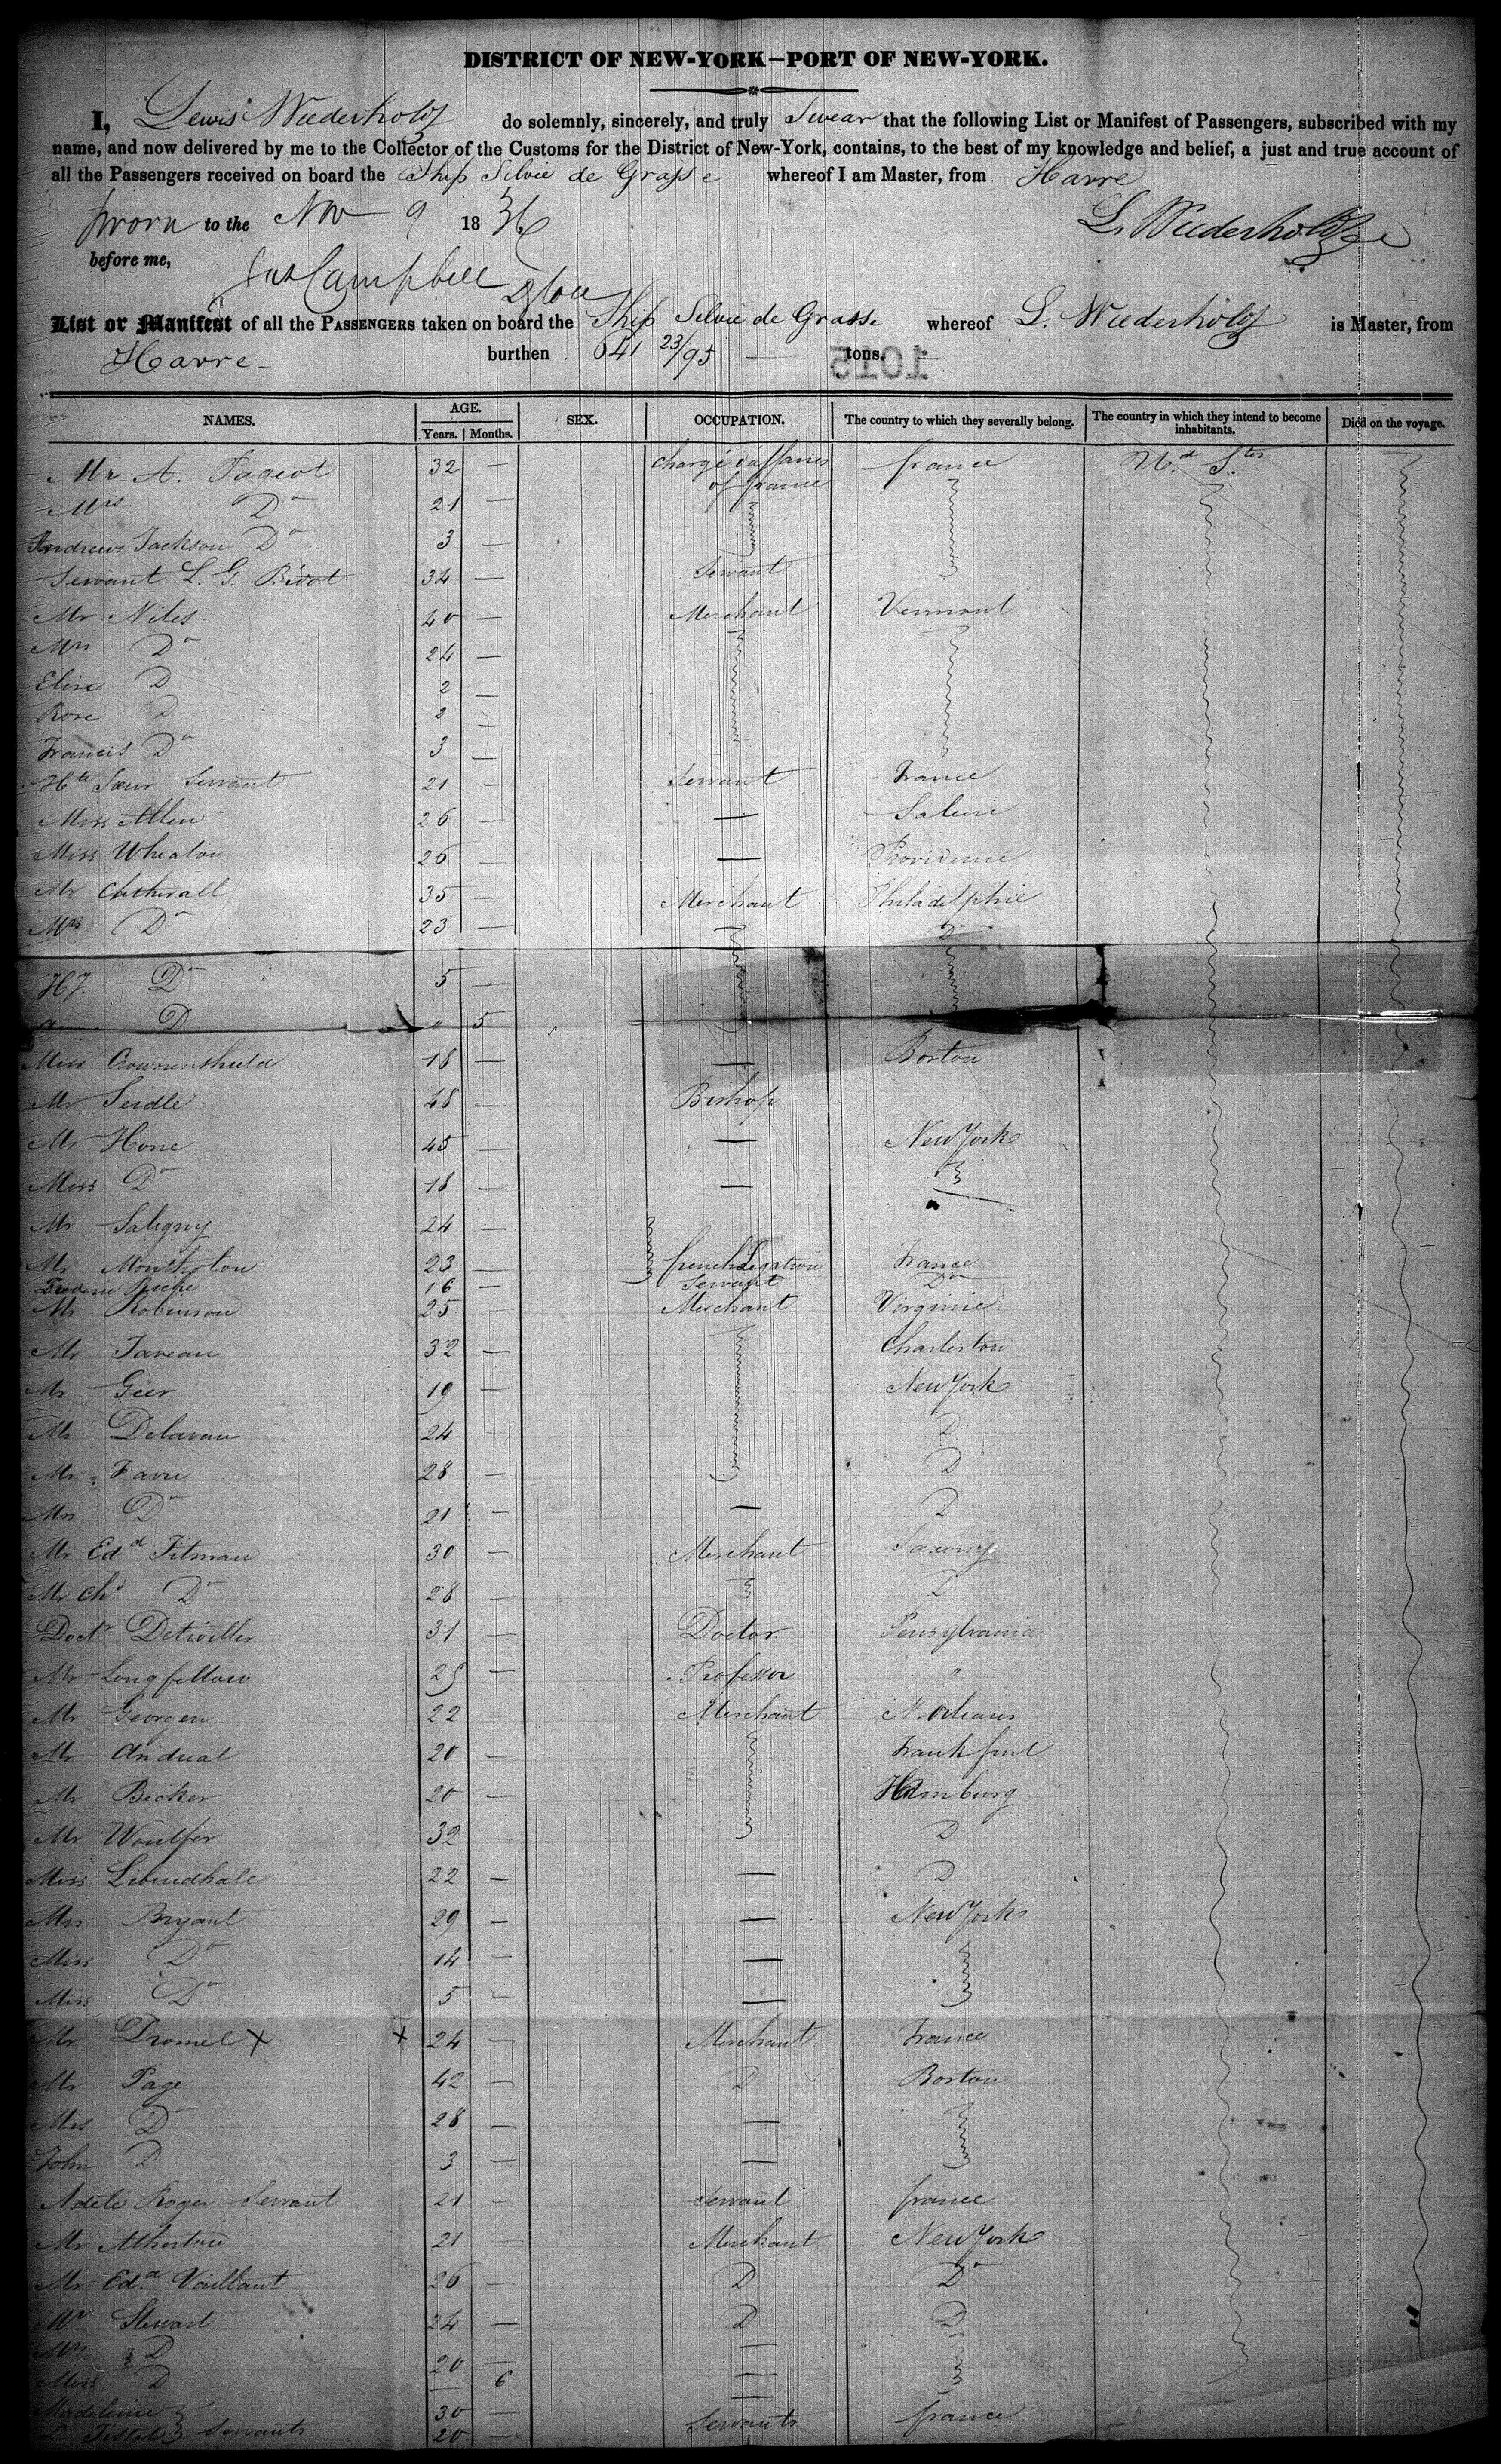 DISTRICT OF NEW-YORK—PORT OF NEW-YORK.
I, Lewis Wiederholdt do solemnly, sincerely, and truly Swear that the following List or Manifest of Passengers, subscribed with my
name, and now delivered by me to the Collector of the Customs for the District of New-York, contains, to the best of my knowledge and belief, a just and true account of
all the Passengers received on board the Ship Silvie de Grasse whereof I am Master, from Havre
Sworn to the Nov 9 1836
L. Wiederholdt
before me,
Jas Campbell
List or Manifest of all the PASSENGERS taken on board the Ship Silvie de Grasse whereof L. Wiederholdt is Master, from
Havre burthen 641 23/95 tons.
1015
NAMES. AGE. SEX. OCCUPATION. The country to which they severally belong. The country in which they intend to become inhabitants. Died on the voyage.
Years. Months.
Mr A. Pageot 32 — chargé d'affaires of france france Ud Stes
Mrs Do 21 —
Andrews Jackson Do 3 —
Servant L. G. Bidot 34 — Servant
Mr Niles 40 — Merchant Vermont
Mrs Do 24 —
Elise D 2 —
Rose D 2 —
Francis Do 3 —
Hte Soeur Servant 21 — Servant France
Miss Allen 26 — — Salem
Miss Wheaton 26 — — Providence
Mr Catherall 35 — Merchant Philadelphie
Mrs Do 23 — D
H J. Do 5 —
a D " 5
Miss Crowninshield 18 — — Boston
Mr Serdle 48 — Bishop
Mr Hone 45 — — New York
Miss Do 18 — —
Mr Saligny 24 —
Mr Montholon 23 — french Legation France
Frederic 16 — Servant Do
Mr Robinson 25 — Merchant Virginie
Mr Taveau 32 — Charleston
Mr Geer 19 — New York
Mr Delavau 24 — D
Mr Favre 28 — D
Mrs Do 21 — — D
Mr Edd Titman 30 — Merchant Saxony
Mr Chs Do 28 — D
Doctr Detwiller 31 — Doctor Pensylvania
Mr Longfellow 25 — Professor "
Mr Georgen 22 — Merchant N. Orleans
Mr Andual 20 — Frankfurt
Mr Becker 20 — Hamburg
Mr Woulfer 32 — D
Miss Libendhale 22 — — D
Mrs Bryant 29 — — New York
Miss Do 14 — —
Miss Do 5 — —
Mr Dromel x x 24 — Merchant France
Mr Page 42 — D Boston
Mrs Do 28 — —
John D 3 — —
Adele Roger Servant 21 — Servant france
Mr Atherton 21 — Merchant New York
Mr Edd Vaillant 26 — D Do
Mr Stewart 24 — D D
Mrs D 20 — —
Miss D — 6 —
Madeleine 30 — —
L. Servants 20 — Servants france